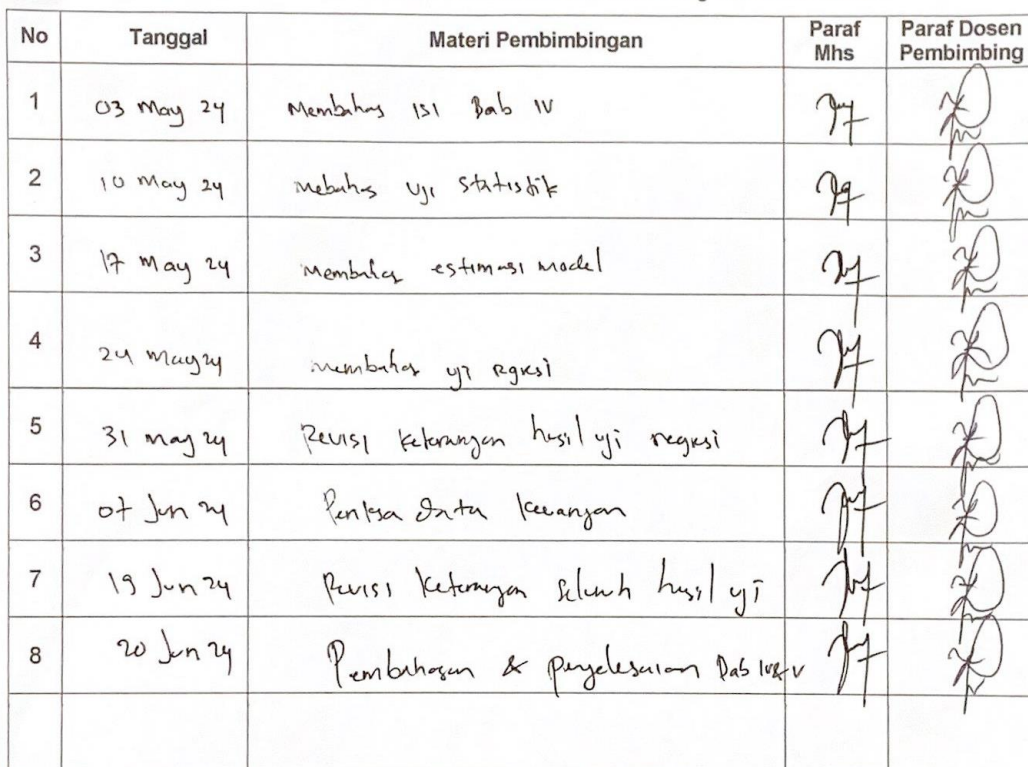 No Tanggal Materi Pembimbingan Paraf Mhs Paraf Dosen Pembimbing
1 03 May 24 Membahas ISI Bab IV
2 10 May 24 Mebahas Uji Statistik
3 17 May 24 Membahas estimasi model
4 24 May 24 Membahas uji regresi
5 31 May 24 Revisi keterangan hasil uji regresi
6 07 Jun 24 Periksa data keuangan
7 19 Jun 24 Revisi keterangan seluruh hasil uji
8 20 Jun 24 Pembahasan & penyelesaian Bab IV & V